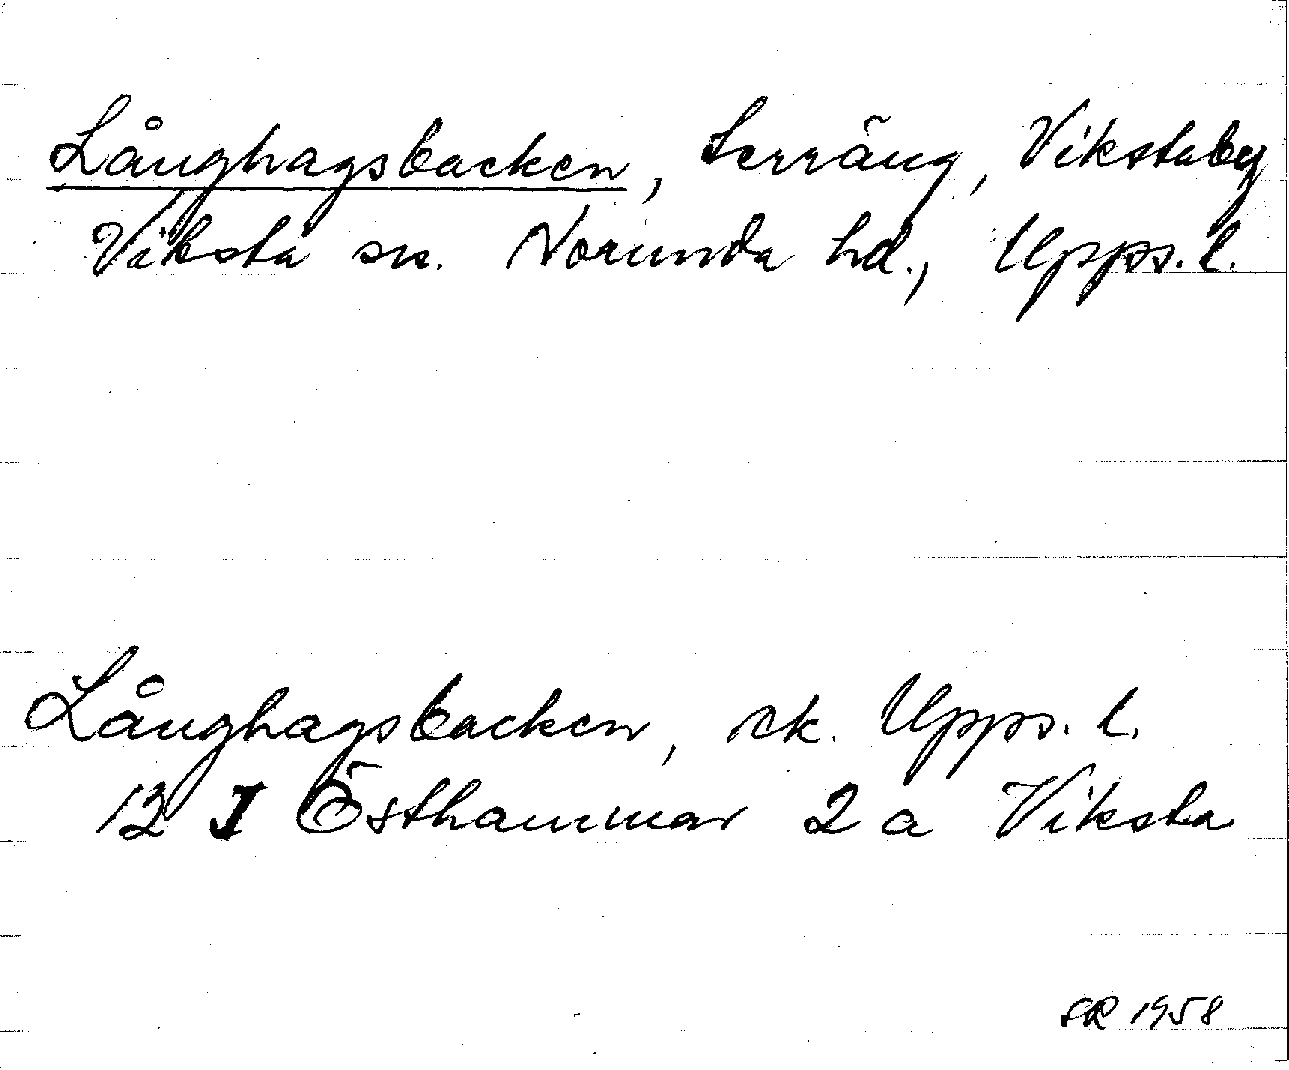 Långhagsbacken, terräng, Vikstaby
Viksta sn. Norunda hd., Upps. l.
Långhagsbacken, rk. Upps. l.
12 I Östhammar 2 a Viksta
SR 1958